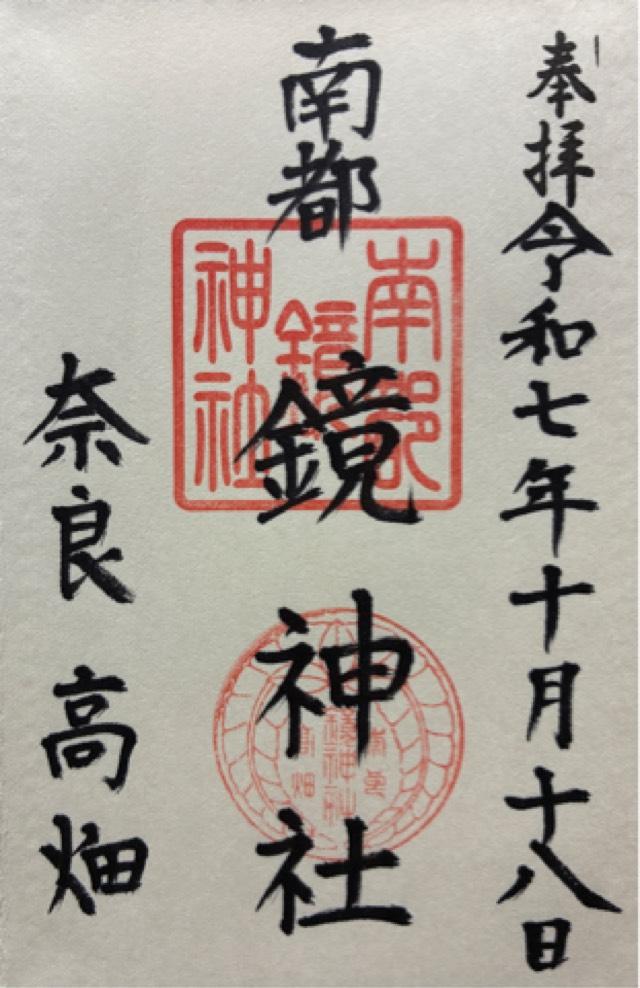 奉拝 令和七年十月十八日
南都 鏡神社
奈良 高畑
南都
鏡
神社
南都
鏡神社
高畑